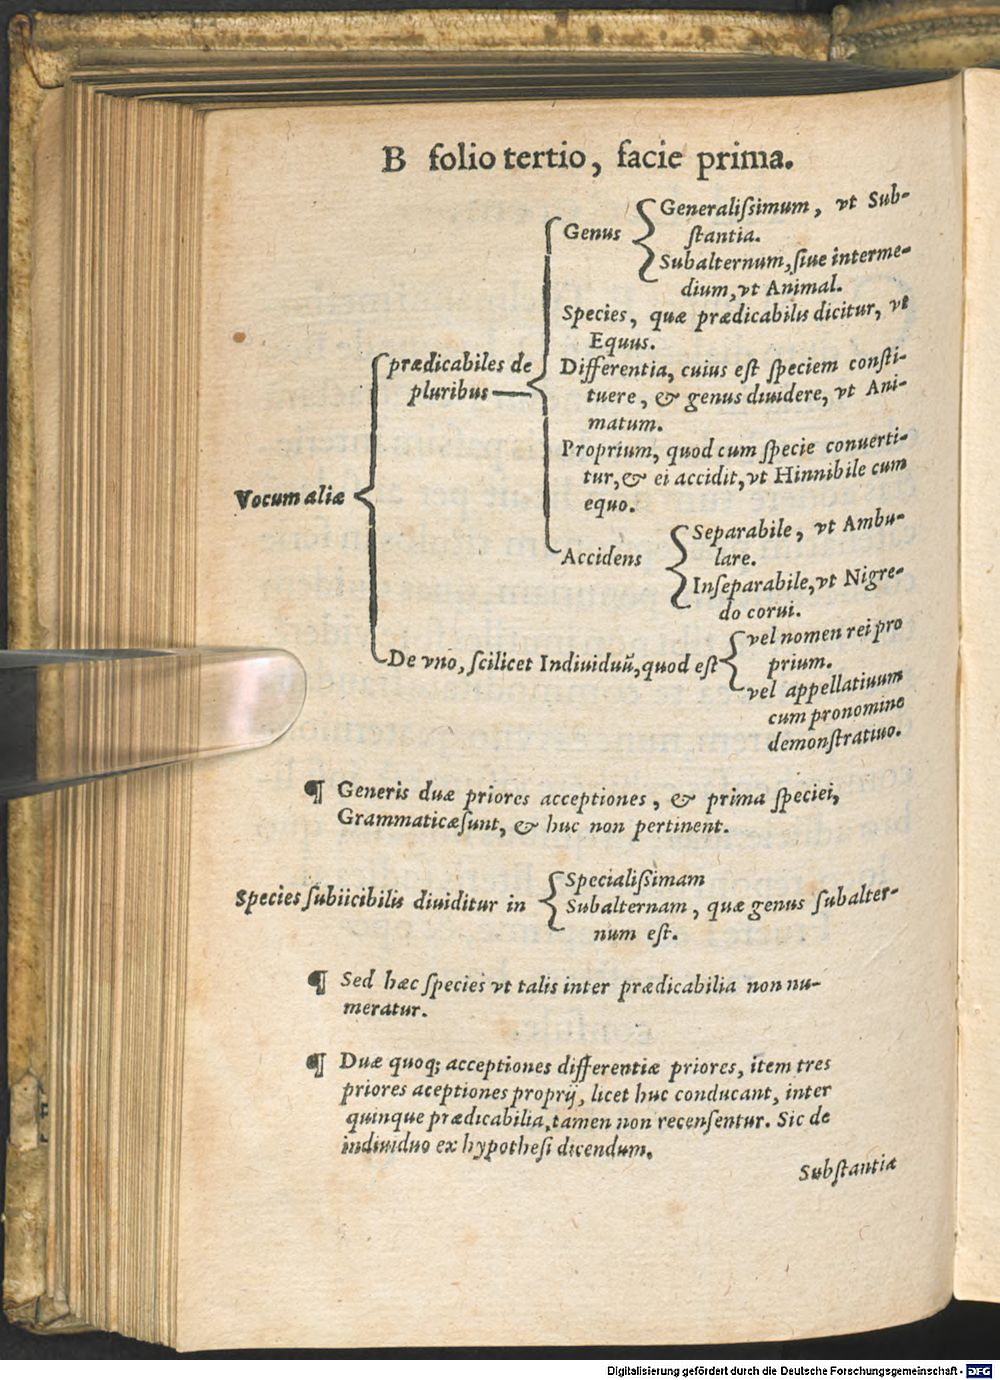 B folio tertio, facie prima.
Vocum aliæ
prædicabiles de
pluribus
Genus
Generaliſsimum, vt Sub-
ſtantia.
Subalternum, ſiue interme-
dium, vt Animal.
Species, quæ prædicabilis dicitur, vt
Equus.
Differentia, cuius eſt ſpeciem conſti-
tuere, & genus diuidere, vt Ani-
matum.
Proprium, quod cum ſpecie conuerti-
tur, & ei accidit, vt Hinnibile cum
equo.
Accidens
Separabile, vt Ambu-
lare.
Inſeparabile, vt Nigre-
do corui.
De vno, ſcilicet Indiuiduũ, quod eſt
vel nomen rei pro
prium.
vel appellatiuum
cum pronomine
demonſtratiuo.
¶ Generis duæ priores acceptiones, & prima ſpeciei,
Grammaticæ ſunt, & huc non pertinent.
Species ſubiicibilis diuiditur in
Specialiſsimam
Subalternam, quæ genus ſubalter-
num eſt.
¶ Sed hæc ſpecies vt talis inter prædicabilia non nu-
meratur.
¶ Duæ quoq; acceptiones differentiæ priores, item tres
priores aceptiones proprij, licet huc conducant, inter
quinque prædicabilia, tamen non recenſentur. Sic de
indiuiduo ex hypotheſi dicendum.
Subſtantiæ
Digitalisierung gefördert durch die Deutsche Forschungsgemeinschaft - DFG